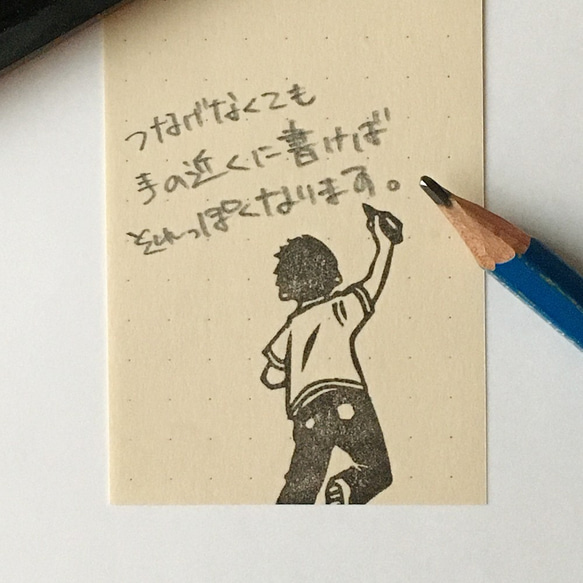 つなげなくても
手の近くに書けば
それっぽくなります。